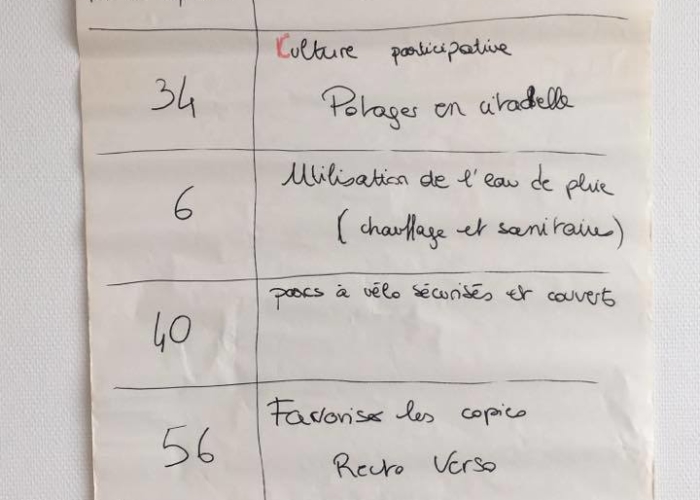 Culture participative
34 Potages en citadelle
Utilisation de l'eau de pluie
6 (chauffage et sanitaire)
parcs à vélo sécurisés et couverts
40
Favoriser les copies
56 Recto Verso